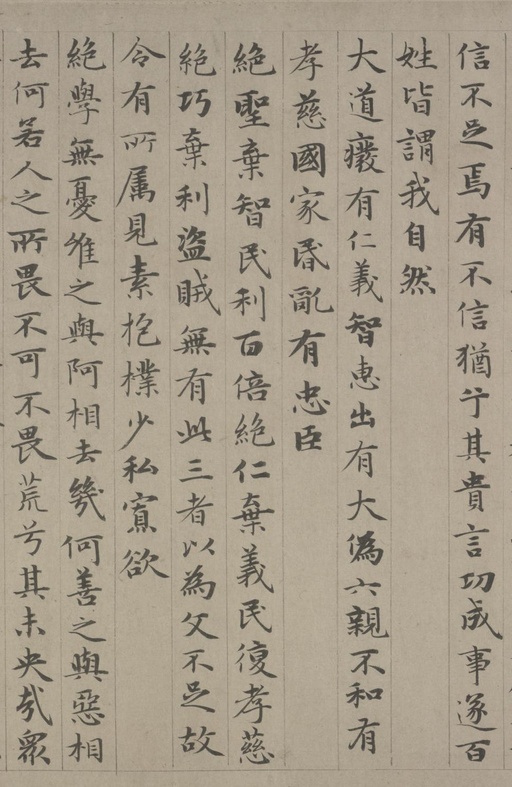 信不足焉有不信猶兮其貴言功成事遂百
姓皆謂我自然
大道癈有仁義智惠出有大偽六親不和有
孝慈國家昏亂有忠臣
絶聖棄智民利百倍絶仁棄義民復孝慈
絶巧棄利盜賊無有此三者以為文不足故
令有所属見素抱樸少私寡欲
絶學無憂唯之與阿相去幾何善之與惡相
去何若人之所畏不可不畏荒兮其未央哉衆